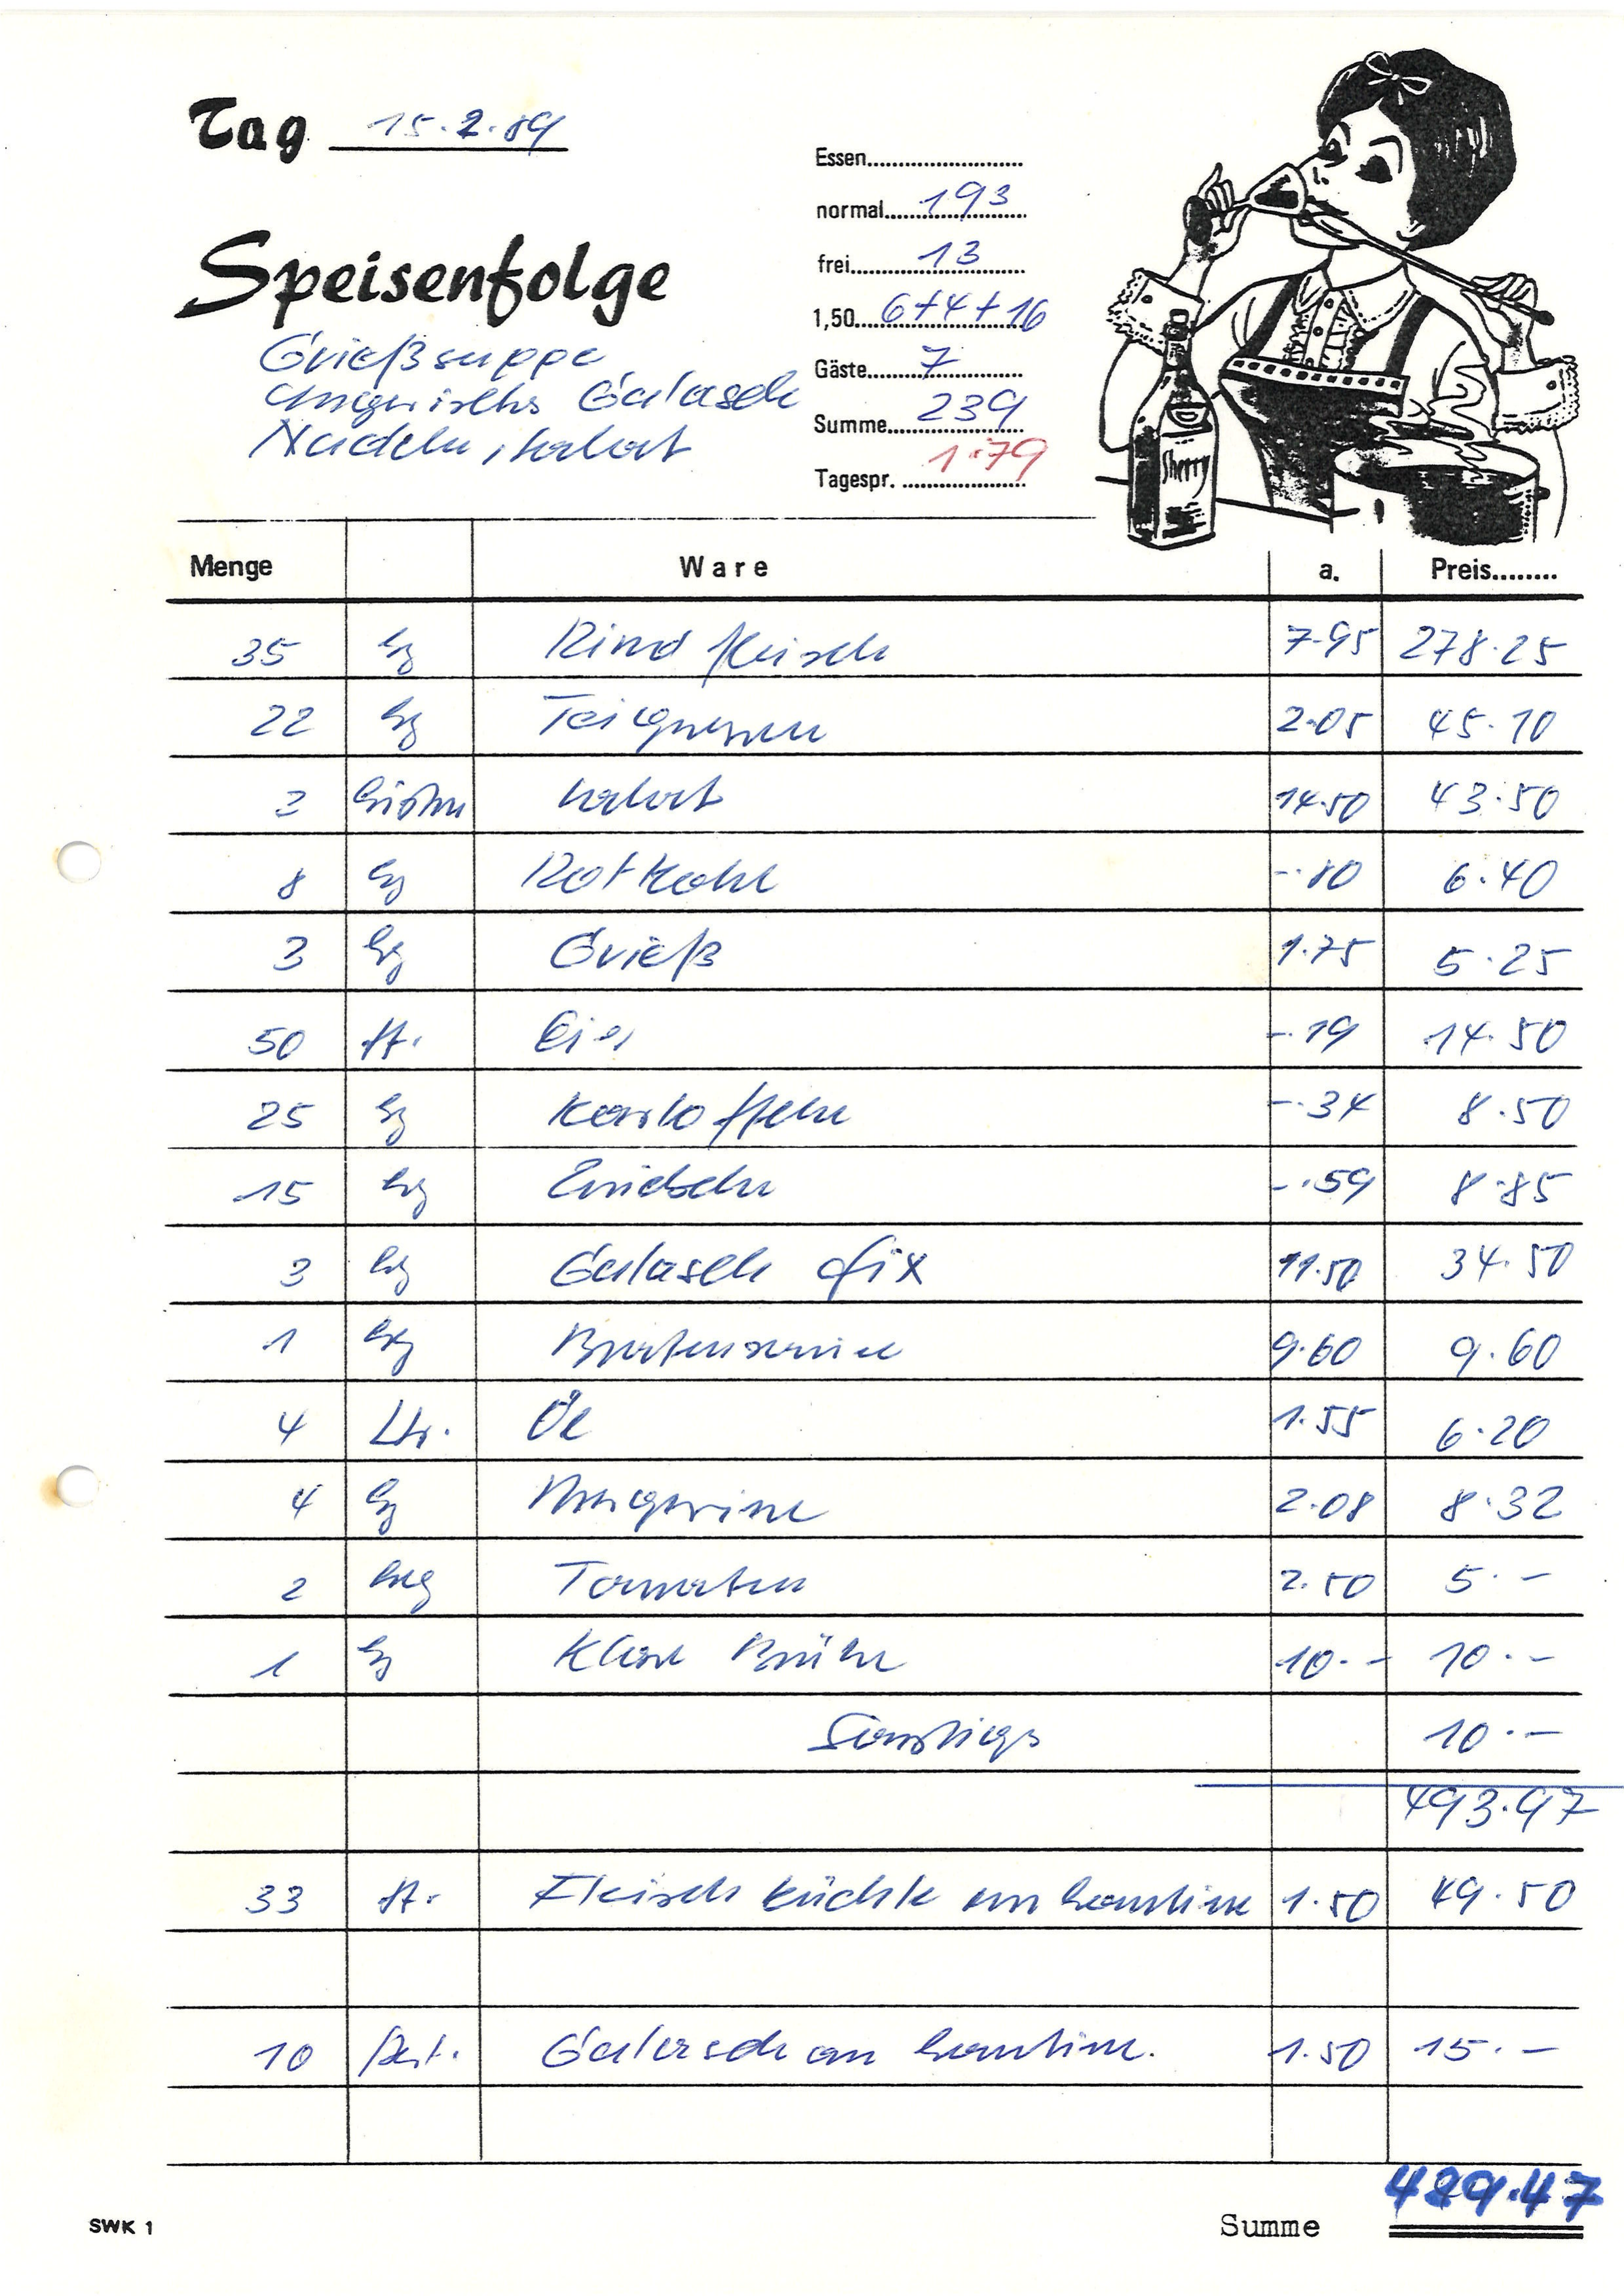 Tag 15.2.89
Essen
normal 193
frei 13
1,50 6+4+16
Speisenfolge
Gäste 7
Grießsuppe
Ungarisches Gulasch
Summe 239
Nudeln, Salat
Tagespr. 1.79
Sherry
Menge Ware a. Preis
35 kg Rindfleisch 7.95 278.25
22 kg Teigwaren 2.05 45.10
3 Kisten Salat 14.50 43.50
8 kg Rotkohl -.80 6.40
3 kg Grieß 1.75 5.25
50 St. Eier -.19 14.50
25 kg Kartoffeln -.34 8.50
15 kg Zwiebeln -.59 8.85
3 kg Gulasch fix 11.50 34.50
1 kg Bratensauce 9.60 9.60
4 Ltr. Öl 1.55 6.20
4 kg Margarine 2.08 8.32
2 kg Tomaten 2.50 5.-
1 kg Klare Brühe 10.- 10.-
Sonstiges 10.-
493.97
33 St. Fleischküchle an Kantine 1.50 49.50
10 Port. Gulasch an Kantine. 1.50 15.-
429.47
SWK 1 Summe